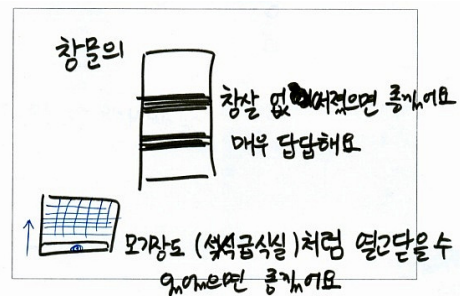 창문의
창살 없어졌으면 좋겠어요
매우 답답해요
모기장도 (급식실)처럼 열고닫을수
있었으면 좋겠어요